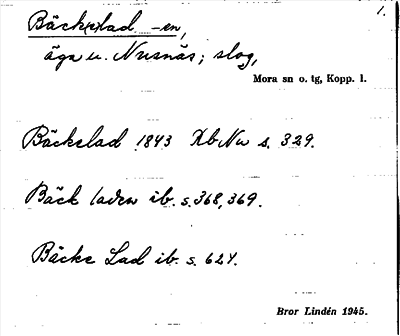 1.
Bäck(e)lad -en,
äga u. Nusnäs; slog,
Mora sn o. tg, Kopp. l.
Bäckelad 1843 Xb Nu s. 329.
Bäck laden ib. s. 368, 369.
Bäcke Lad ib. s. 624.
Bror Lindén 1945.